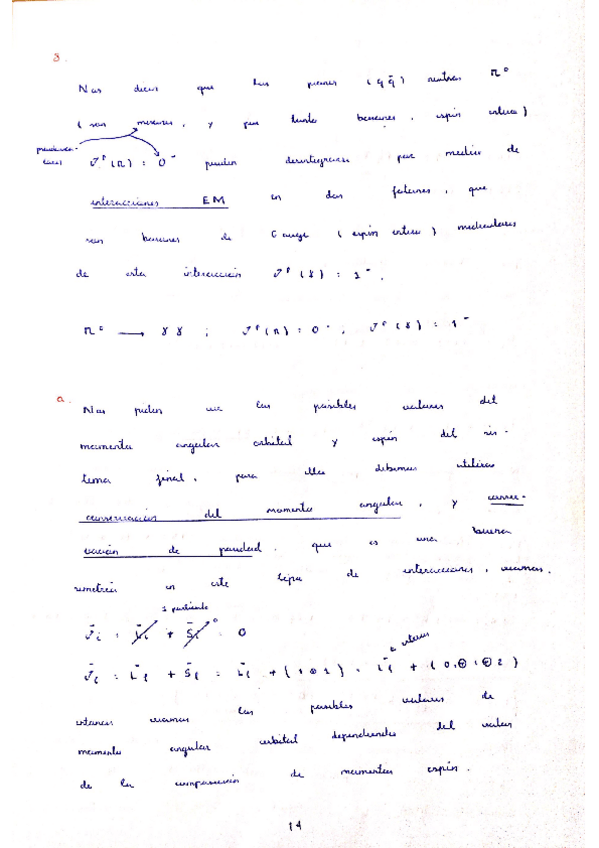 3.
Nos dicen que los piones (q q̄) neutros π⁰
(son mesones, y por tanto bosones, espín entero)
J^P(π) : 0⁻ pueden desintegrarse por medio de
interacciones EM en dos fotones, que
son bosones de Gauge (espín entero) mediadores
de esta interacción J^P(γ) : 1⁻.
π⁰ → γ γ ; J^P(π) : 0⁻, J^P(γ) : 1⁻
a. Nos piden ver los posibles valores del
momento angular orbital y espín del sis-
tema final, para ello debemos utilizar
conservación del momento angular, y conser-
vación de paridad, que es una buena
simetría en este tipo de interacciones, veamos.
1 partícula
J̄i = L̄i + S̄i⁰ = 0
J̄f = L̄f + S̄f = L̄f + (1 ⊗ 1) = L̄f + (0 ⊕ 1 ⊕ 2)
entonces veamos los posibles valores de
momento angular orbital dependientes del valor
de la composición de momentos espín.
14